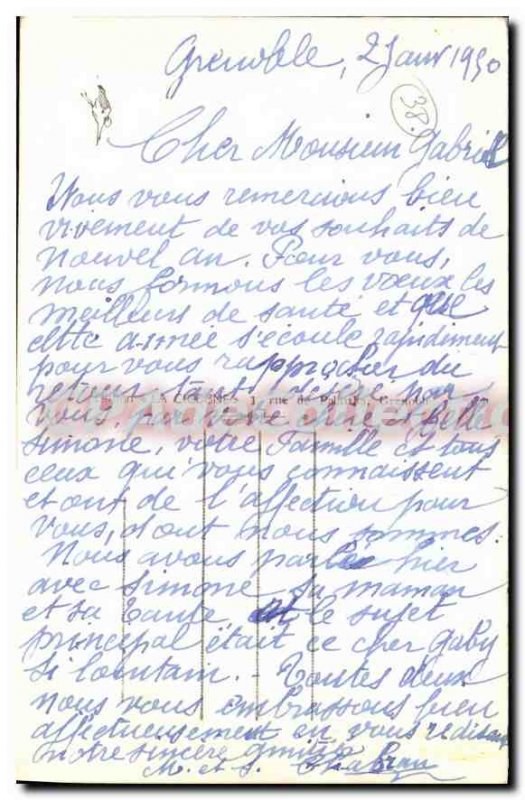 Grenoble, 2 Janv 1950
38
Cher Monsieur Gabriel
Nous vous remercions bien
vivement de vos souhaits de
nouvel an. Pour vous,
nous formons les vœux les
meilleurs de santé et que
cette année s'écoule rapidement
pour vous rapprocher du
retour tant pour
vous, par votre chère
Simone, votre Famille et tous
ceux qui vous connaissent
et ont de l'affection pour
vous, dont nous sommes.
Nous avons parlé hier
avec Simone sa maman
et sa tante et le sujet
principal était ce cher Gaby
si lointain. - Toutes deux
nous vous embrassons bien
affectueusement en vous redisant
notre sincère amitié
M. et S.